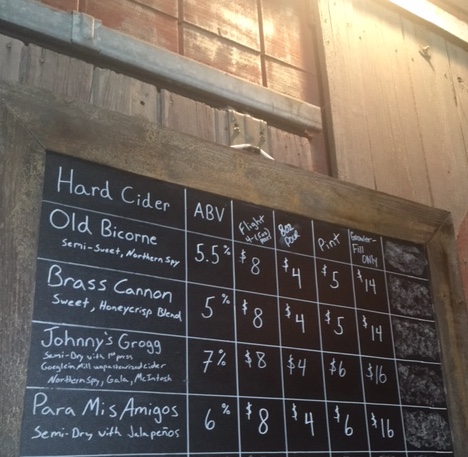 Hard Cider ABV Flight 8oz Pour Pint Growler-Fill ONLY
Old Bicorne 5.5% $8 $4 $5 $14
Semi-Sweet, Northern Spy
Brass Cannon 5% $8 $4 $5 $14
Sweet, Honeycrisp Blend
Johnny's Grogg 7% $8 $4 $6 $16
Semi-Dry with 1st press
Goeglein Mill unpasteurized cider
Northern Spy, Gala, McIntosh
Para Mis Amigos 6% $8 $4 $6 $16
Semi-Dry with Jalapeños